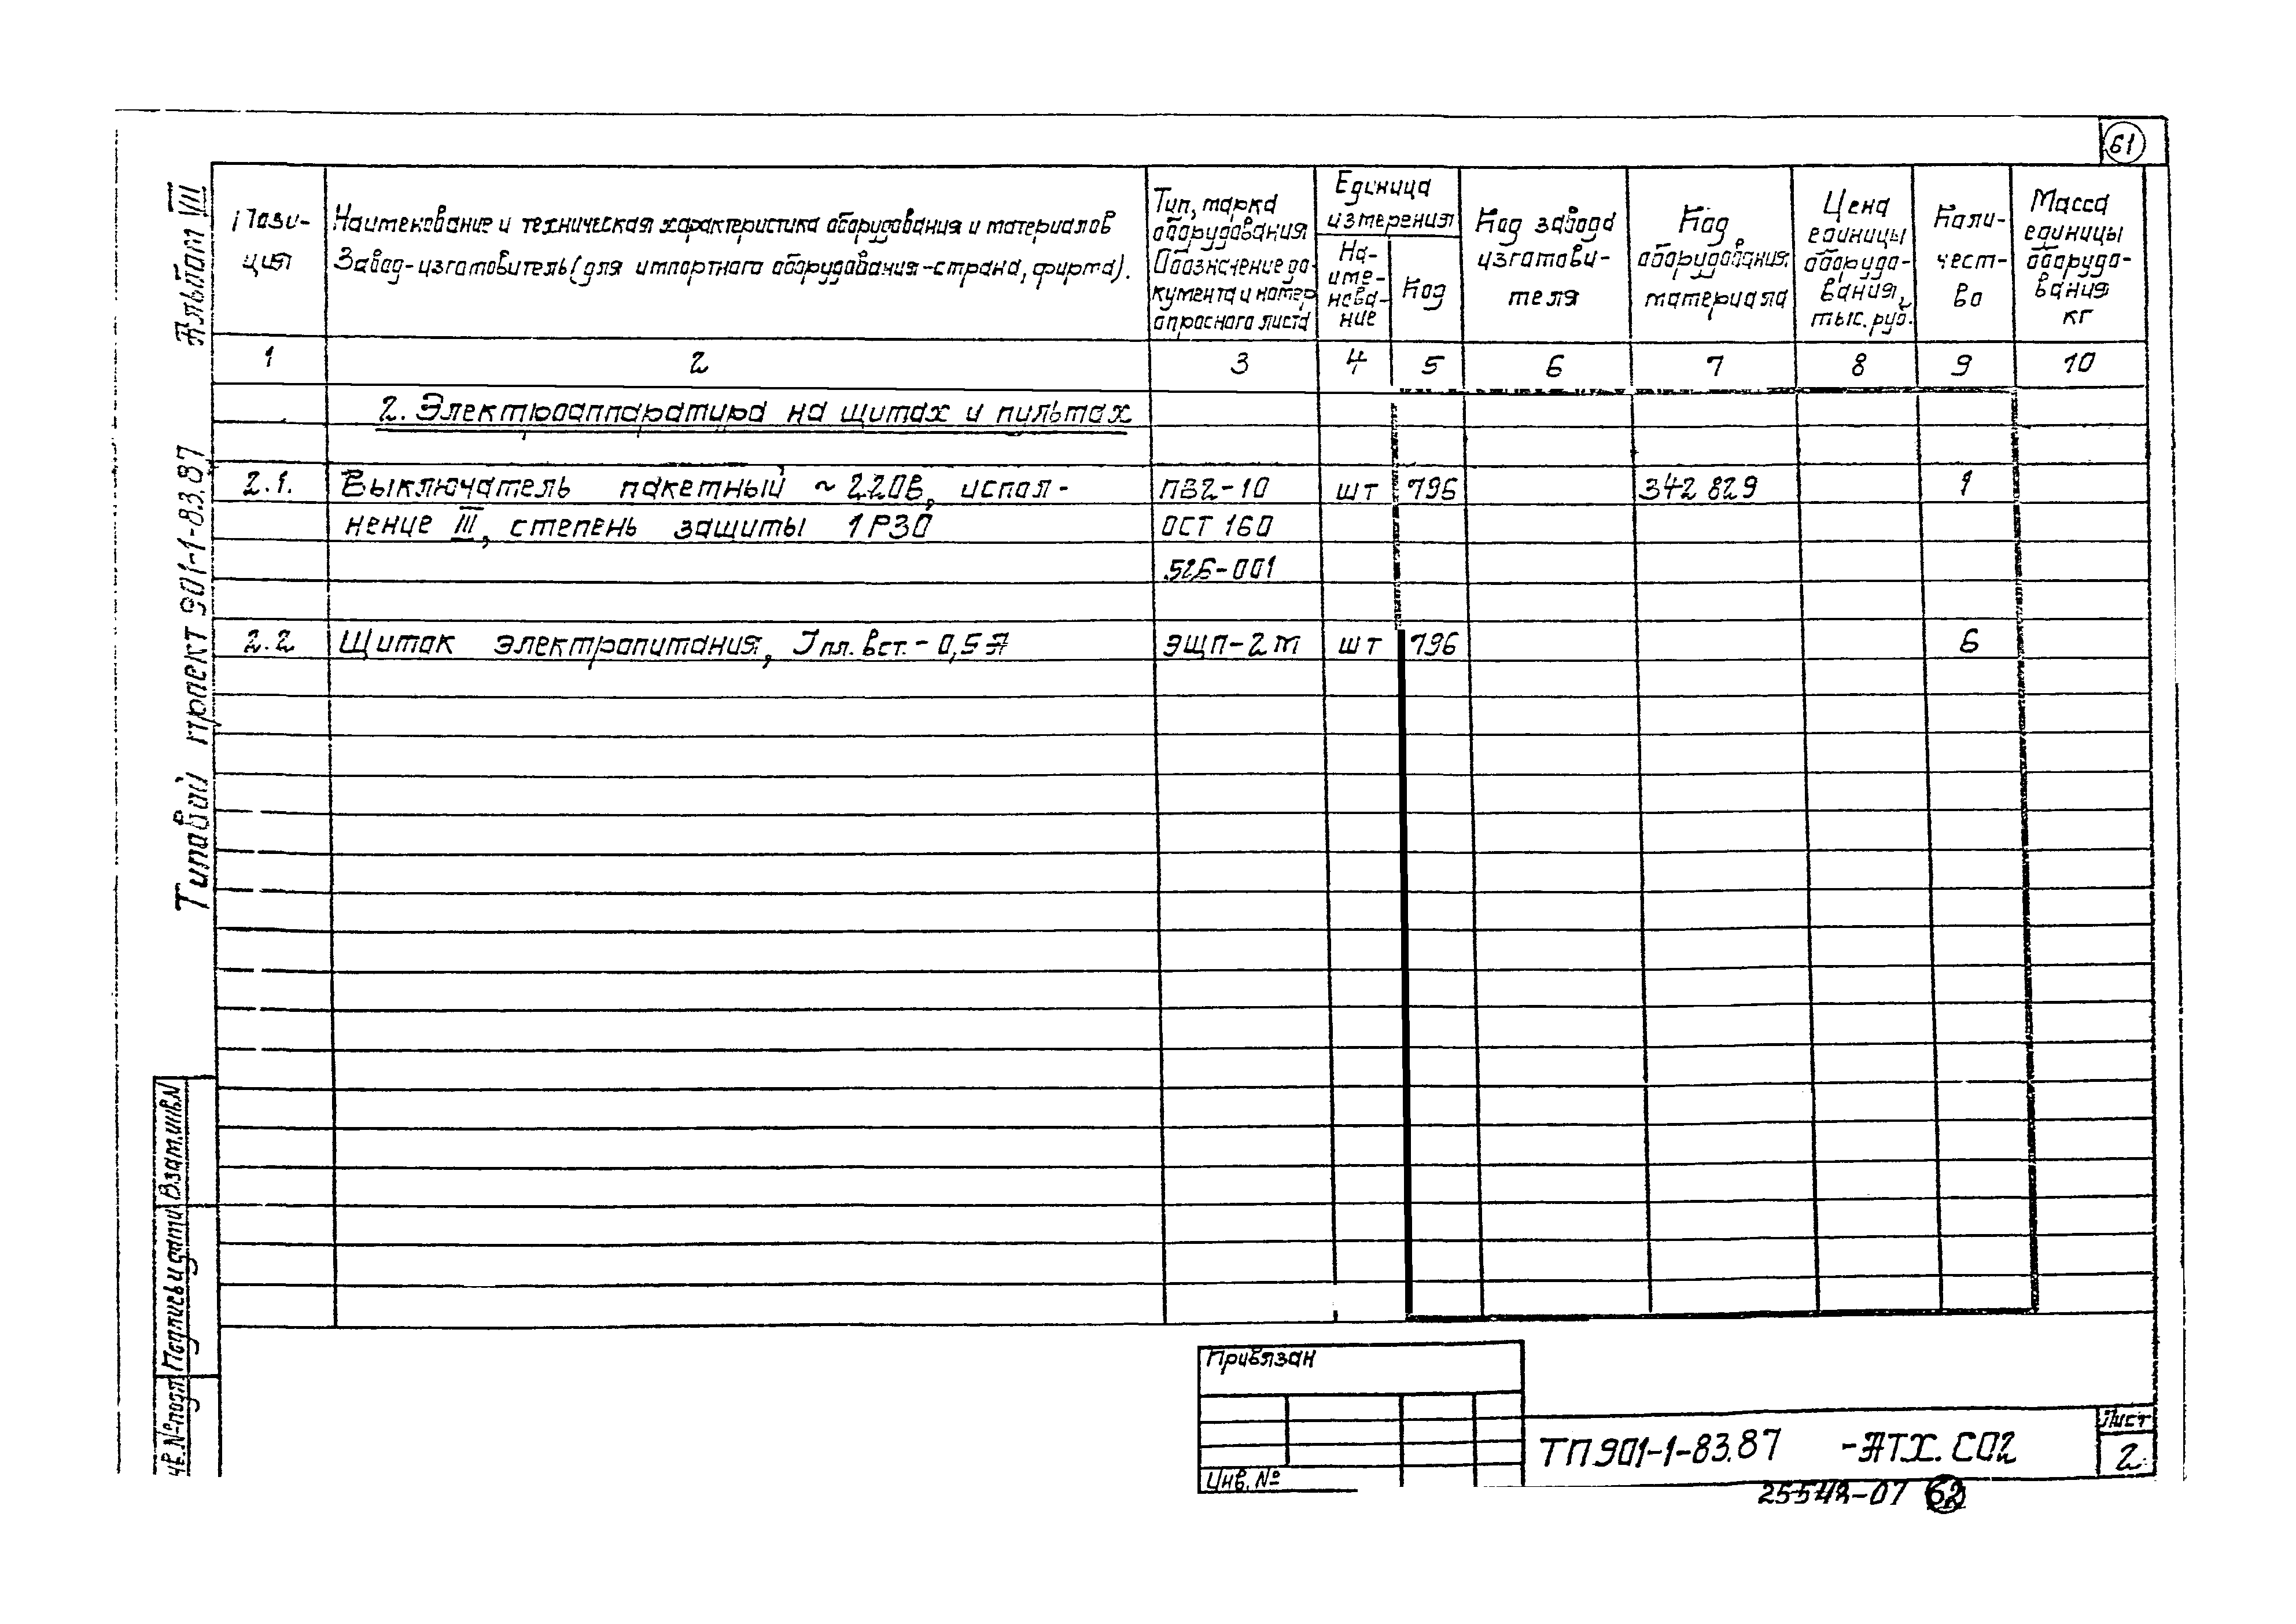 61
Альбом VII
Типовой проект 901-1-83.87
Пози-
ция
Наименование и техническая характеристика оборудования и материалов
Завод-изготовитель (для импортного оборудования-страна, фирма).
Тип, марка
оборудования
Обозначение до-
кумента и номер
опросного листа
Единица
измерения
На-
име-
нова-
ние
Код
Код завода
изготови-
теля
Код
оборудования,
материала
Цена
единицы
оборудо-
вания,
тыс. руб.
Коли-
чест-
во
Масса
единицы
оборудо-
вания
кг
1 2 3 4 5 6 7 8 9 10
2. Электроаппаратура на щитах и пультах
2.1. Выключатель пакетный ~ 220В, испол- ПВ2-10 шт 796 342 829 1
нение III, степень защиты 1Р30 ОСТ 160
526-001
2.2 Щиток электропитания, Iпл. вст. - 0,5А ЭЩП-2м шт 796 6
Взам. инв. N
Подпись и дата
№ подл.
Привязан
Инв. №
ТП 901-1-83.87 -АТХ. СО2
Лист
2
25542-07 62